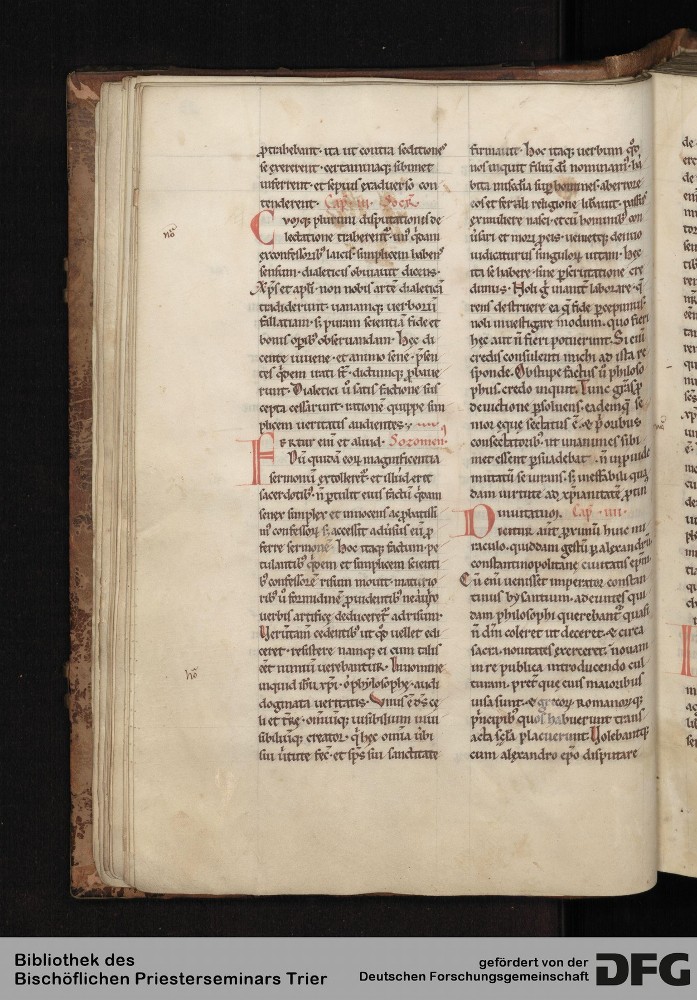 ꝓtrahebant· ita ut contra seditione⁹
se exererent· certaminaq; sibimet
inferrent· et sepius exaduerso con
tenderent· Cap̄· iii· Socr̄
Cūq; plurimi disputationis de
lectatione traherent᷑· un⁹ q̇dam
ex confessorib⁹ laicis· simplicem habens
sensum· dialeticis obuiauit dicens·
Xp̄s et apl̄i· non nobis artē dialeticā
tradiderunt· uanamq; uerborū
fallatiam· s; puram scientiā fide et
bonis opib⁹ obseruandam· Hęc di
cente iuuene· et animo sene· p̄sen
tes q̇dem
runt· Dialetici ů satis factione sus
cepta cessarunt· rationē quippe sim
plicem ueritatis audientes·
Fertur eni et aliud· Sozomen·
Dū quidā eorū magnificentia
sermonum extolleret᷑· et illuderet
sacerdotib⁹· n̄ ꝑtulit eius fastū q̇dam
senex simplex et innocens
confessorū s; accessit adūsus eū ꝓ
ferre sermonē· Hoc itaq; factum· pe
tulantib⁹ q̇dem et simplicem scienti
b⁹ confessorē risum mouit· maturio
rib⁹ ů formidinē ꝓuidentib⁹ ne
uerbis artifice deduceret᷑ ad risum·
Verūtam cedentib⁹ ut q̊d uellet edi
ceret· resistere namq; ei cum talis
eēt nimiū uerebantur· In nomine
inquid ih̄u xp̄i· o phylosophe· audi
dogmata ueritatis· Unus ē d̄s cę
li et tr̄ę· omniūq; uisibilium inui
sibiliūq; creator· q̇ hęc omnia ūbi
sui ůtute fec̄· et sp̄s sui sanctitate
firmauit· Hoc itaq; uerbum q̊d
nos inquit filiū dī nominam⁹· ha
bita misc̄dia sup̄ homines· ab errore
eos et ferali religione libauit· passus
ex muliere nasci· et cū hominib⁹ con
ūsari et mori ꝓ eis· ueniet q; denuo
iudicaturus singulorū uitam· Hęc
ita se habere· sine
dimus· Noli ḡ inaniť laborare· q̄
rens destruere ea q̄ fide ꝑcepimus·
noli inuestigare modum· quo fieri
hęc aut n̄ fieri potuerint· Si eni
credis consulenti michi ad ista re
sponde· Obstupe factus ů philoso
phus· credo inquit· Tunc gr̄as ꝓ
deuictione ꝑsoluens· eademq; se
mori eque sectatus ē· et prioribus
consectatorib⁹· ut unanimes sibi
met essent ꝑsuadebat· n̄ inprouide
mutatū se iurans· s; ineffabili qua
dam uirtute ad xp̄ianitatē ꝓtin
Dinuitatum· Cap̄· iiii·
Dicitur aut̄ ꝓximū huic mi
raculo· quoddam gestū ꝑ alexandrū
constantinopolitanę ciuitatis ep̄m·
Cū eni uenisset imperator constan
tinus byzantium· adeuntes qui
dam philosophi querebant᷑ quasi
n̄ d̄m coleret ut deceret· et circa
sacra nouitates exerceret· nouam
in re publica introducendo cul
turam· pret̄ que eius maioribus
uisa sunt· et grecorū romanorūq;
pⁱncipib⁹ quos habuerunt trans
acta scl̄a placuerunt· Volebantq;
cum alexandro ep̄o disputare
Bibliothek des
Bischöflichen Priesterseminars Trier
gefördert von der
Deutschen Forschungsgemeinschaft
DFG